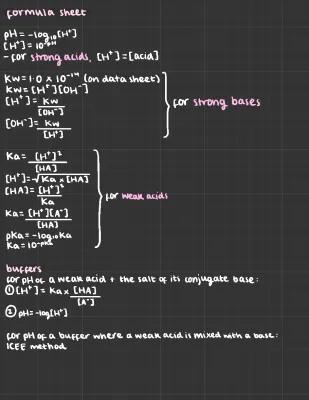 formula sheet
pH = -log₁₀[H⁺]
[H⁺] = 10^-pH
- for strong acids, [H⁺] = [acid]
Kw = 1.0 × 10⁻¹⁴ (on data sheet)
Kw = [H⁺][OH⁻]
[H⁺] = Kw / [OH⁻]
for strong bases
[OH⁻] = Kw / [H⁺]
Ka = [H⁺]² / [HA]
[H⁺] = √Ka × [HA]
[HA] = [H⁺]² / Ka
for weak acids
Ka = [H⁺][A⁻] / [HA]
pKa = -log₁₀Ka
Ka = 10^-pKa
buffers
for pH of a weak acid + the salt of its conjugate base:
① [H⁺] = Ka × [HA] / [A⁻]
② pH = -log[H⁺]
for pH of a buffer where a weak acid is mixed with a base:
ICEE method